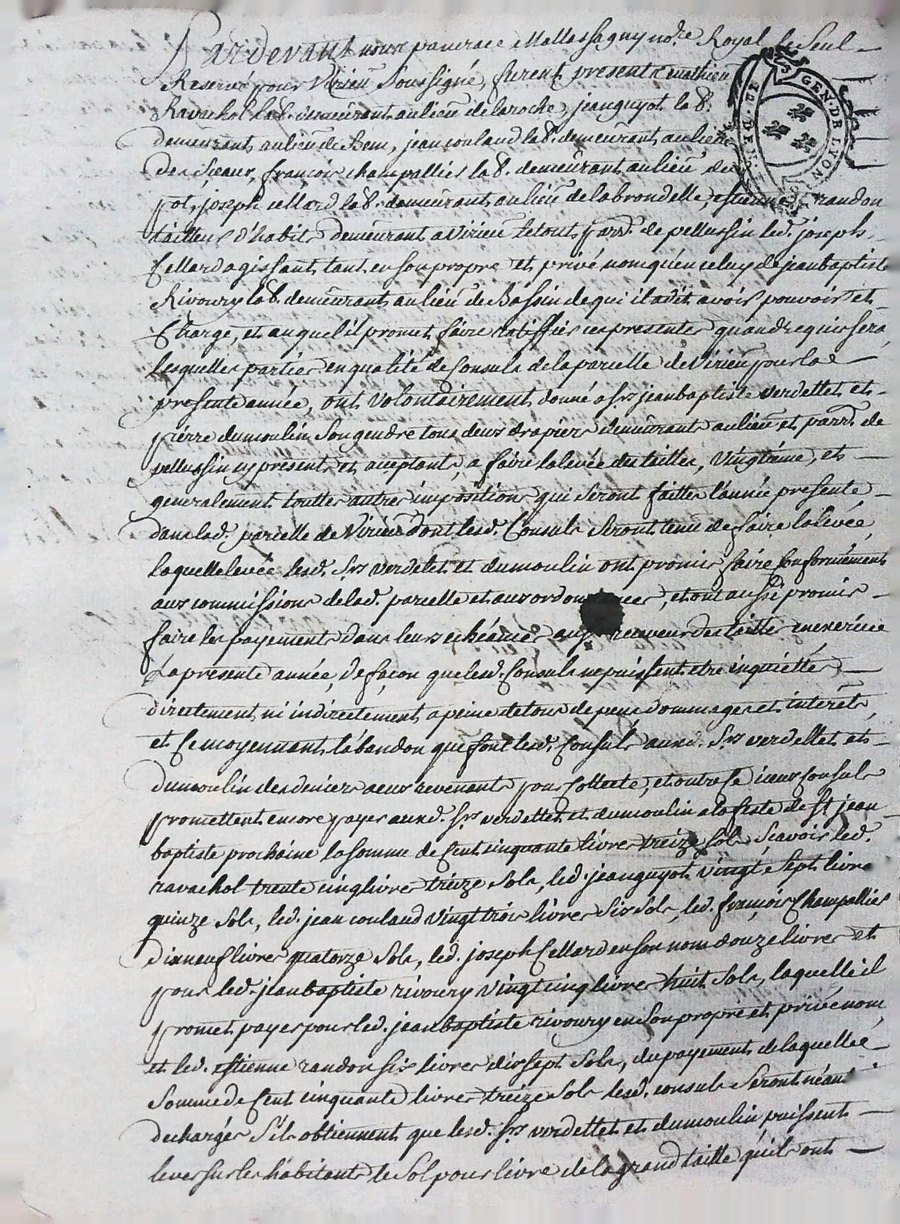 Pardevant nous pancrace Mallassagny no.re Royal le Seul
Reservé pour Virieu Soussigné, furent presents mathieu
Ravachol lab. demeurant au lieu de laroche, jean guyot lab.
demeurant au lieu de Bem, jean couland lab. demeurant au lieu
de Sieaux, françois champallier lab. demeurant au lieu de
pot, joseph cellard lab. demeurant au lieu de labrondelle, estienne randon
tailleur d'habits demeurant a Virieu le tout parr. de pellussin led. joseph
Cellard agissant tant en son propre et privé nom qu'en celuy de jean baptiste
Rivoury lab. demeurant au lieu de Bassin de qui il a dit avoir pouvoir et
Charge, et auquel il promet faire ratiffier ces presentes quand requis sera
lesquelles parties en qualité de Consuls de la parcelle de Virieu pour la
presente année, ont volontairement donné a srs jean baptiste verdellet et
pierre dumoulin son gendre tous deux drapiers demeurants au lieu et parr. de
pellussin cy presents et aceptants, a faire la levée des tailles, vingtiéme, et
generalement touttes autres impositions qui seront faittes l'année presente
dans lad. parcelle de Virieu dont lesd. Consuls seront tenus de faire la levée
laquelle levée lesd. Srs verdelet et dumoulin ont promis faire conformement
aux commissions de lad. parcelle et aux ordonnances, et ont aussi promis
faire les payements dans leurs echéances aux receveur des tailles en exercice
La presente année, de façon que lesd. Consuls ne puissent etre inquietté
directement ni indirectement a peine de tous depens dommages et interets,
et Ce moyennant l'abandon que font lesd. Consuls auxd. Srs verdellet et
dumoulin des deniers a eux revenants pour Collecte, et outre Ce iceux Consuls
promettent encore payer auxd. Srs verdettet et dumoulin a la feste de St jean
baptiste prochaine la somme de Cent cinquante livres treize Sols, Scavoir led.
ravachol trente cinq livres treize Sols, led. jean guyot vingt Sept livres
quinze Sols, led. jean couland vingt trois livres Six Sols, led. françois Champallier
dix neuf livres quatorze Sols, led. joseph Cellard en son nom douze livres et
pour led. jean baptiste rivoury vingt cinq livres huit Sols, laquelle il
promet payer pour led. jean baptiste rivoury en Son propre et privé nom,
et led. estienne randon six livres dixsept Sols, du payement de laquelle
Somme de Cent cinquante livres treize Sols lesd. consuls Seront néant
dechargés S'ils obtiennent que lesd. Srs verdettet et dumoulin puissent
lever sur les habitants le Sol pour livre de la grand taille qu'ils ont
GEN. DE LYON